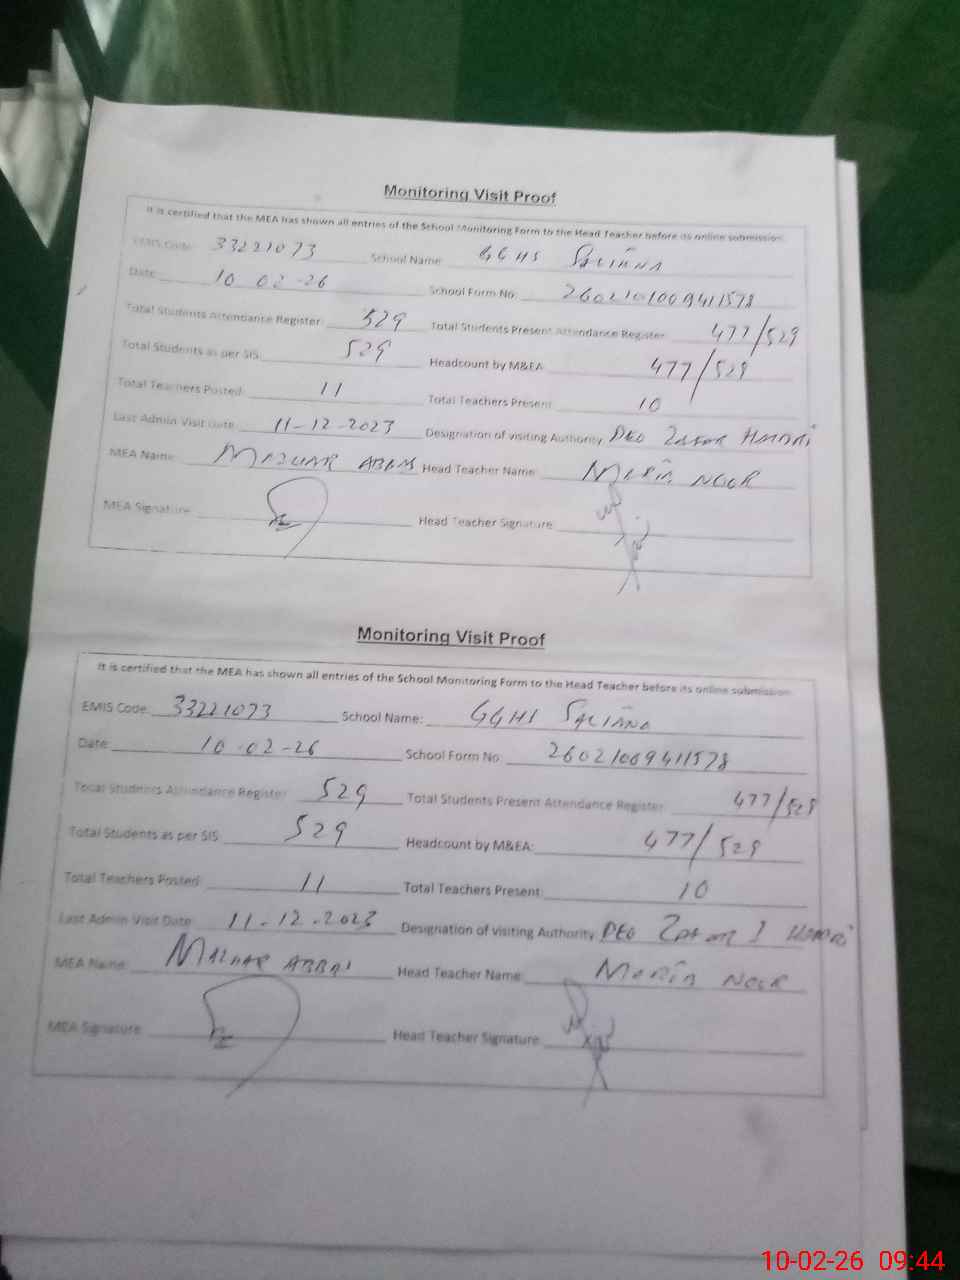 Monitoring Visit Proof
It is certified that the MEA has shown all entries of the School Monitoring Form to the Head Teacher before its online submission
EMIS Code: 33221073 School Name: GGHS SALIANA
Date: 10-02-26 School Form No: 2602101009411578
Total Students Attendance Register: 529 Total Students Present Attendance Register: 477/529
Total Students as per SIS: 529 Headcount by M&EA: 477/529
Total Teachers Posted: 11 Total Teachers Present: 10
Last Admin Visit Date: 11-12-2023 Designation of visiting Authority DEO ZAFAR
MEA Name: MAZHAR ABBAS Head Teacher Name: MARIA NOOR
MEA Signature: Head Teacher Signature:
Monitoring Visit Proof
It is certified that the MEA has shown all entries of the School Monitoring Form to the Head Teacher before its online submission
EMIS Code: 33221073 School Name: GGHS SALIANA
Date: 10-02-26 School Form No: 26021009411578
Total Students Attendance Register: 529 Total Students Present Attendance Register: 477/529
Total Students as per SIS: 529 Headcount by M&EA: 477/529
Total Teachers Posted: 11 Total Teachers Present: 10
Last Admin Visit Date: 11-12-2023 Designation of visiting Authority DEO
MEA Name: MAZHAR ABBAS Head Teacher Name: MARIA NOOR
MEA Signature: Head Teacher Signature:
10-02-26 09:44